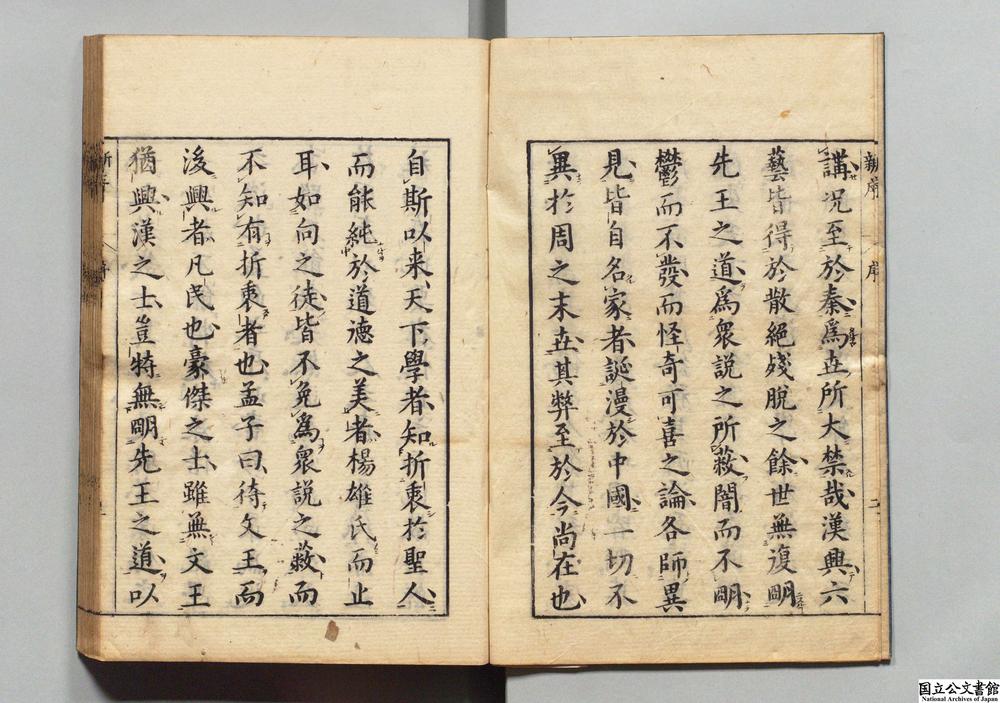 新序 序 二
講況至於秦爲丗所大禁哉漢興六
藝皆得於散絕殘脫之餘世無復明
先王之道爲衆說之所蔽闇而不明
鬱而不發而怪奇可喜之論各師異
見皆自名家者誕漫於中國一切不
異於周之末丗其弊至於今尚在也
自斯以来天下學者知折衷於聖人
而能純於道德之美者楊雄氏而止
耳如向之徒皆不免爲衆說之蔽而
不知有折衷者也孟子曰待文王而
後興者凡民也豪傑之士雖無文王
猶興漢之士豈特無明先王之道以
国立公文書館
National Archives of Japan